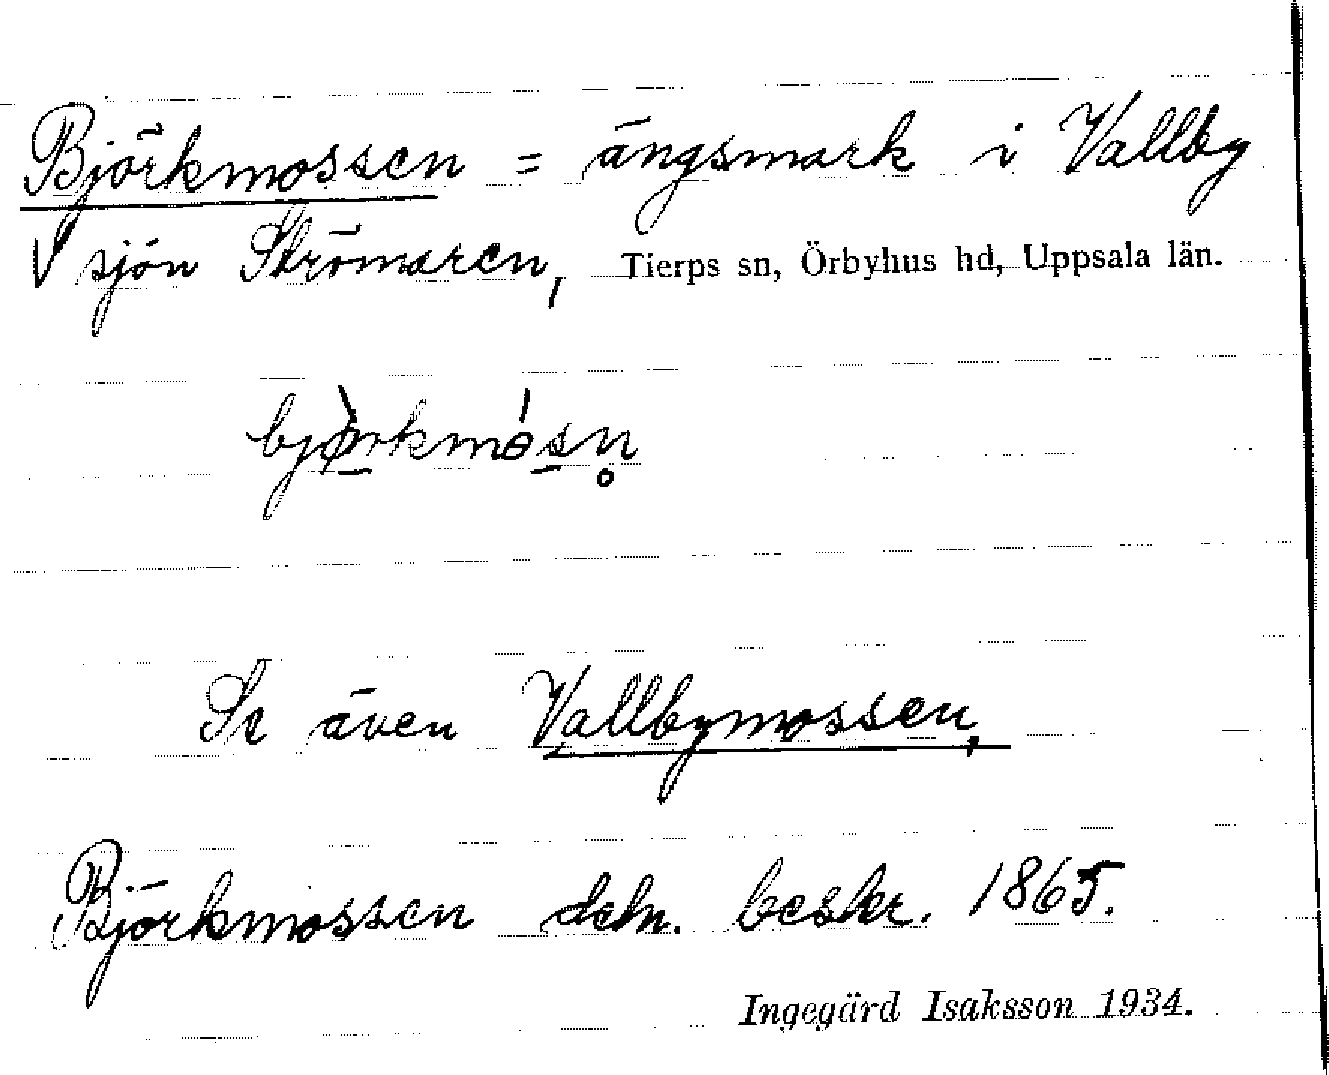 Björkmossen = ängsmark i Vallby
V sjön Strömaren, Tierps sn, Örbyhus hd, Uppsala län.
bjø̀rkmósn̥
Se även Vallbymossen,
Björkmossen deln. beskr. 1865.
Ingegärd Isaksson 1934.